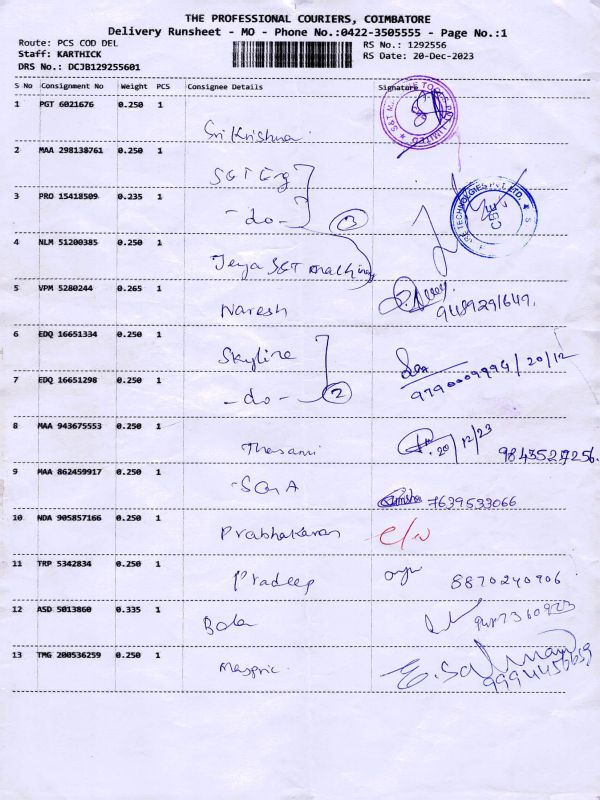 THE PROFESSIONAL COURIERS, COIMBATORE
Delivery Runsheet - MO - Phone No.:0422-3505555 - Page No.:1
Route: PCS COD DEL
RS No.: 1292556
Staff: KARTHICK
RS Date: 20-Dec-2023
DRS No.: DCJB129255601
S No Consignment No Weight PCS Consignee Details Signature
1 PGT 6021676 0.250 1
Sri Krishna
2 MAA 298138761 0.250 1
S&T Eng
3 PRO 15418509 0.235 1
- do - 3
4 NLM 51200385 0.250 1
Jeya S&T machinery
5 VPM 5280244 0.265 1
Naresh 9489291649.
6 EDQ 16651334 0.250 1
Skyline
7 EDQ 16651298 0.250 1
- do - 2 9790009994/20/12
8 MAA 943675553 0.250 1
20/12/23 9843527256.
9 MAA 862459917 0.250 1
SGA 7639533066
10 NDA 905857166 0.250 1
Prabhakaran
11 TRP 5342834 0.250 1
Pradeep 8870240906
12 ASD 5013860 0.335 1
Bala
13 TMG 200536259 0.250 1
E. Salman